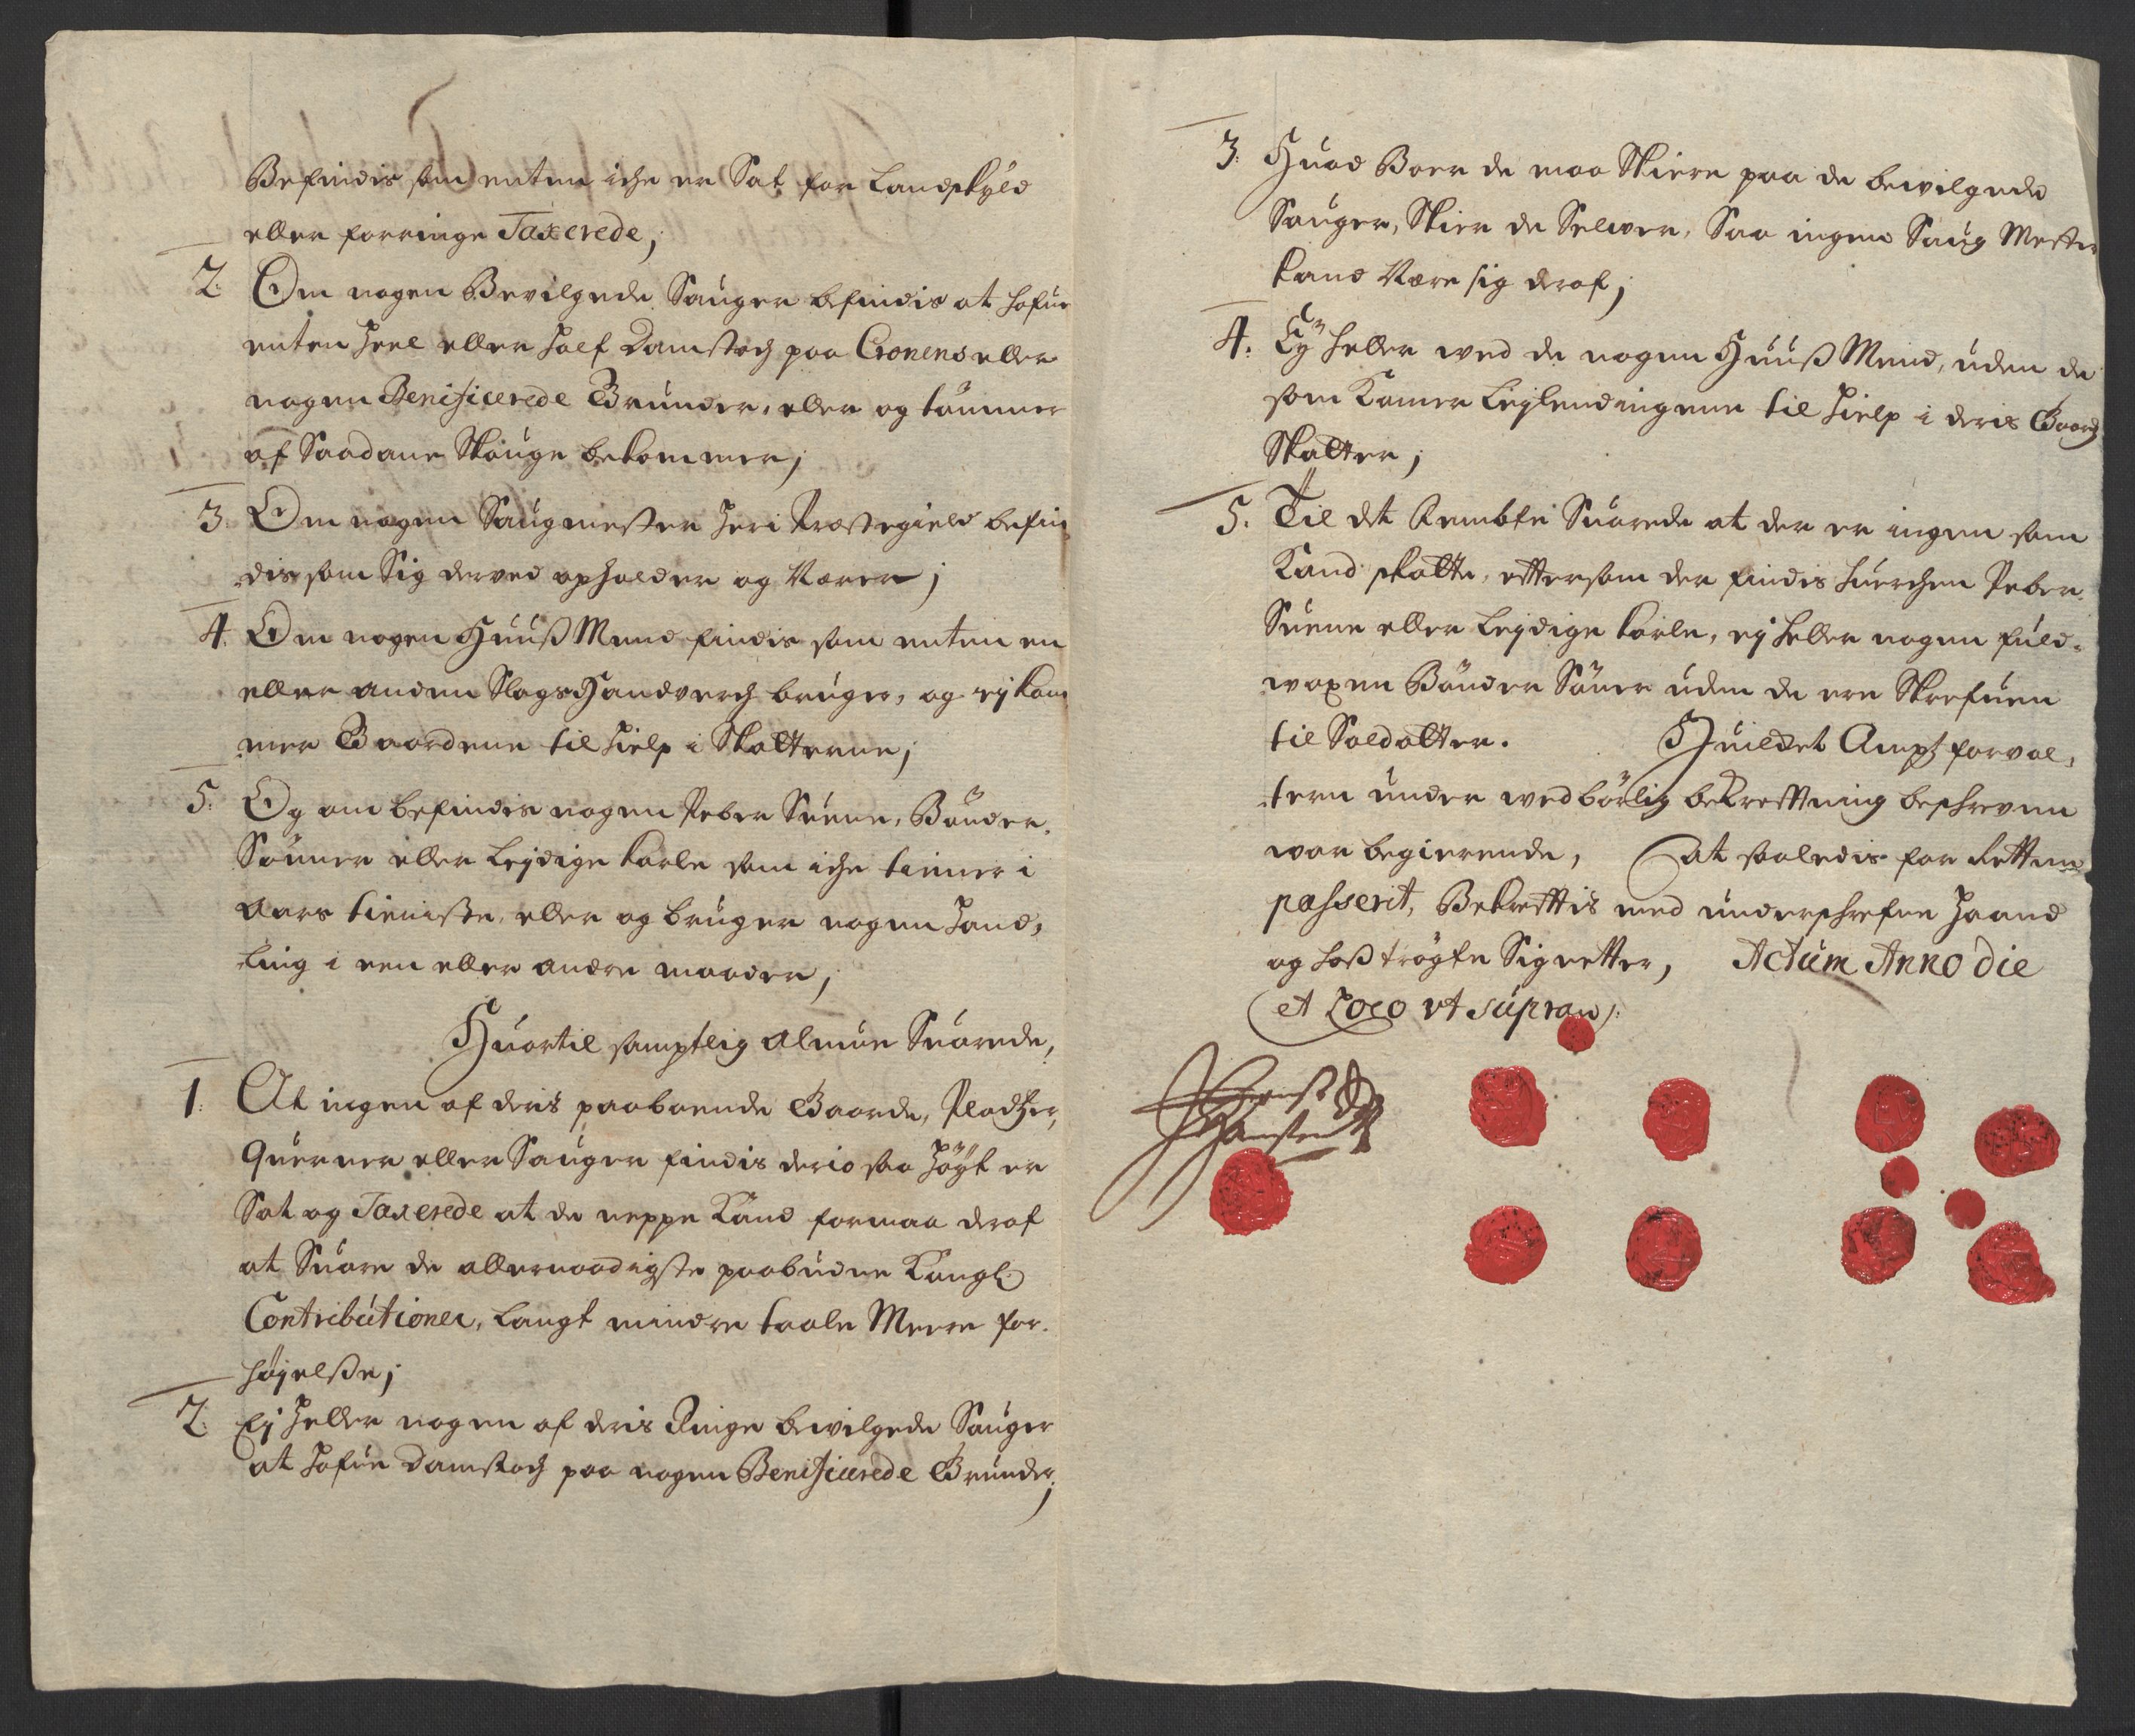 Befindis som enten iche er Sat for Landschyld
eller for ringe Taxerede;
2. Om nogen Bevilgede Sauger befindis at hafue
enten heel eller half Damstoch paa Cronens eller
nogen Benificerede Grunder, eller og tømmer
af Saadane Skouge bekommer;
3. Om nogen Saugmester her i Præstegield befin¬
dis som Sig derved opholder og Nærer;
4. Om nogen Huuß Mend findis som enten en
eller anden Slags Handverch bruger, og ej kom
mer Gaardene til hielp i Skatterne;
5. Og om befindis nogen Peber Suenne, Bønder¬
Sønner eller Lejdige Karle som iche tienner i
Aars tieniste, eller og bruger nogen Hand¬
ling i een eller andre maader;
Huortil samptlig Almue Suarede,
1. At ingen af deris paaboende Gaarde, Pladtzer,
Querner eller Sauger findis der io saa høyt er
Sat og Taxerede at de neppe Kand formaa deraf
at Suare de allernaadigste paabudne Kongl:
Contributioner, langt mindre taale Meere for¬
højelße;
2. Ej heller nogen af deris Ringe bevilgede Sauger
at hafue Damstoch paa nogen Benificerede Grunder;
3. Huad Boer de maa Skiere paa de bewilgede
Sauger, Skier de Selwer, Saa ingen Saug Mester
kand Nære sig deraf;
4. Ey heller wed de nogen Huuß Mend, uden de
som Kommer Leylendingene til hielp i deris Gaards
Skatter;
5. Til det Fembte Suarede at der er ingen som
Kand skatte, efftersom der findis huerchen Peber
Suenne eller Lejdige Karle, ej heller nogen fuld¬
woxen Bønder Sønner uden de ere Skrefuen
til Soldatter. Huilchet Ampt forval¬
teren under wedbørlig bekrefftning beschreven
war begierende, at saaledis for Retten
passerit, Bekrefftis med underschrefne Haand
og hoß trøgte Signetter, Actum Anno die
et Loco ut supra